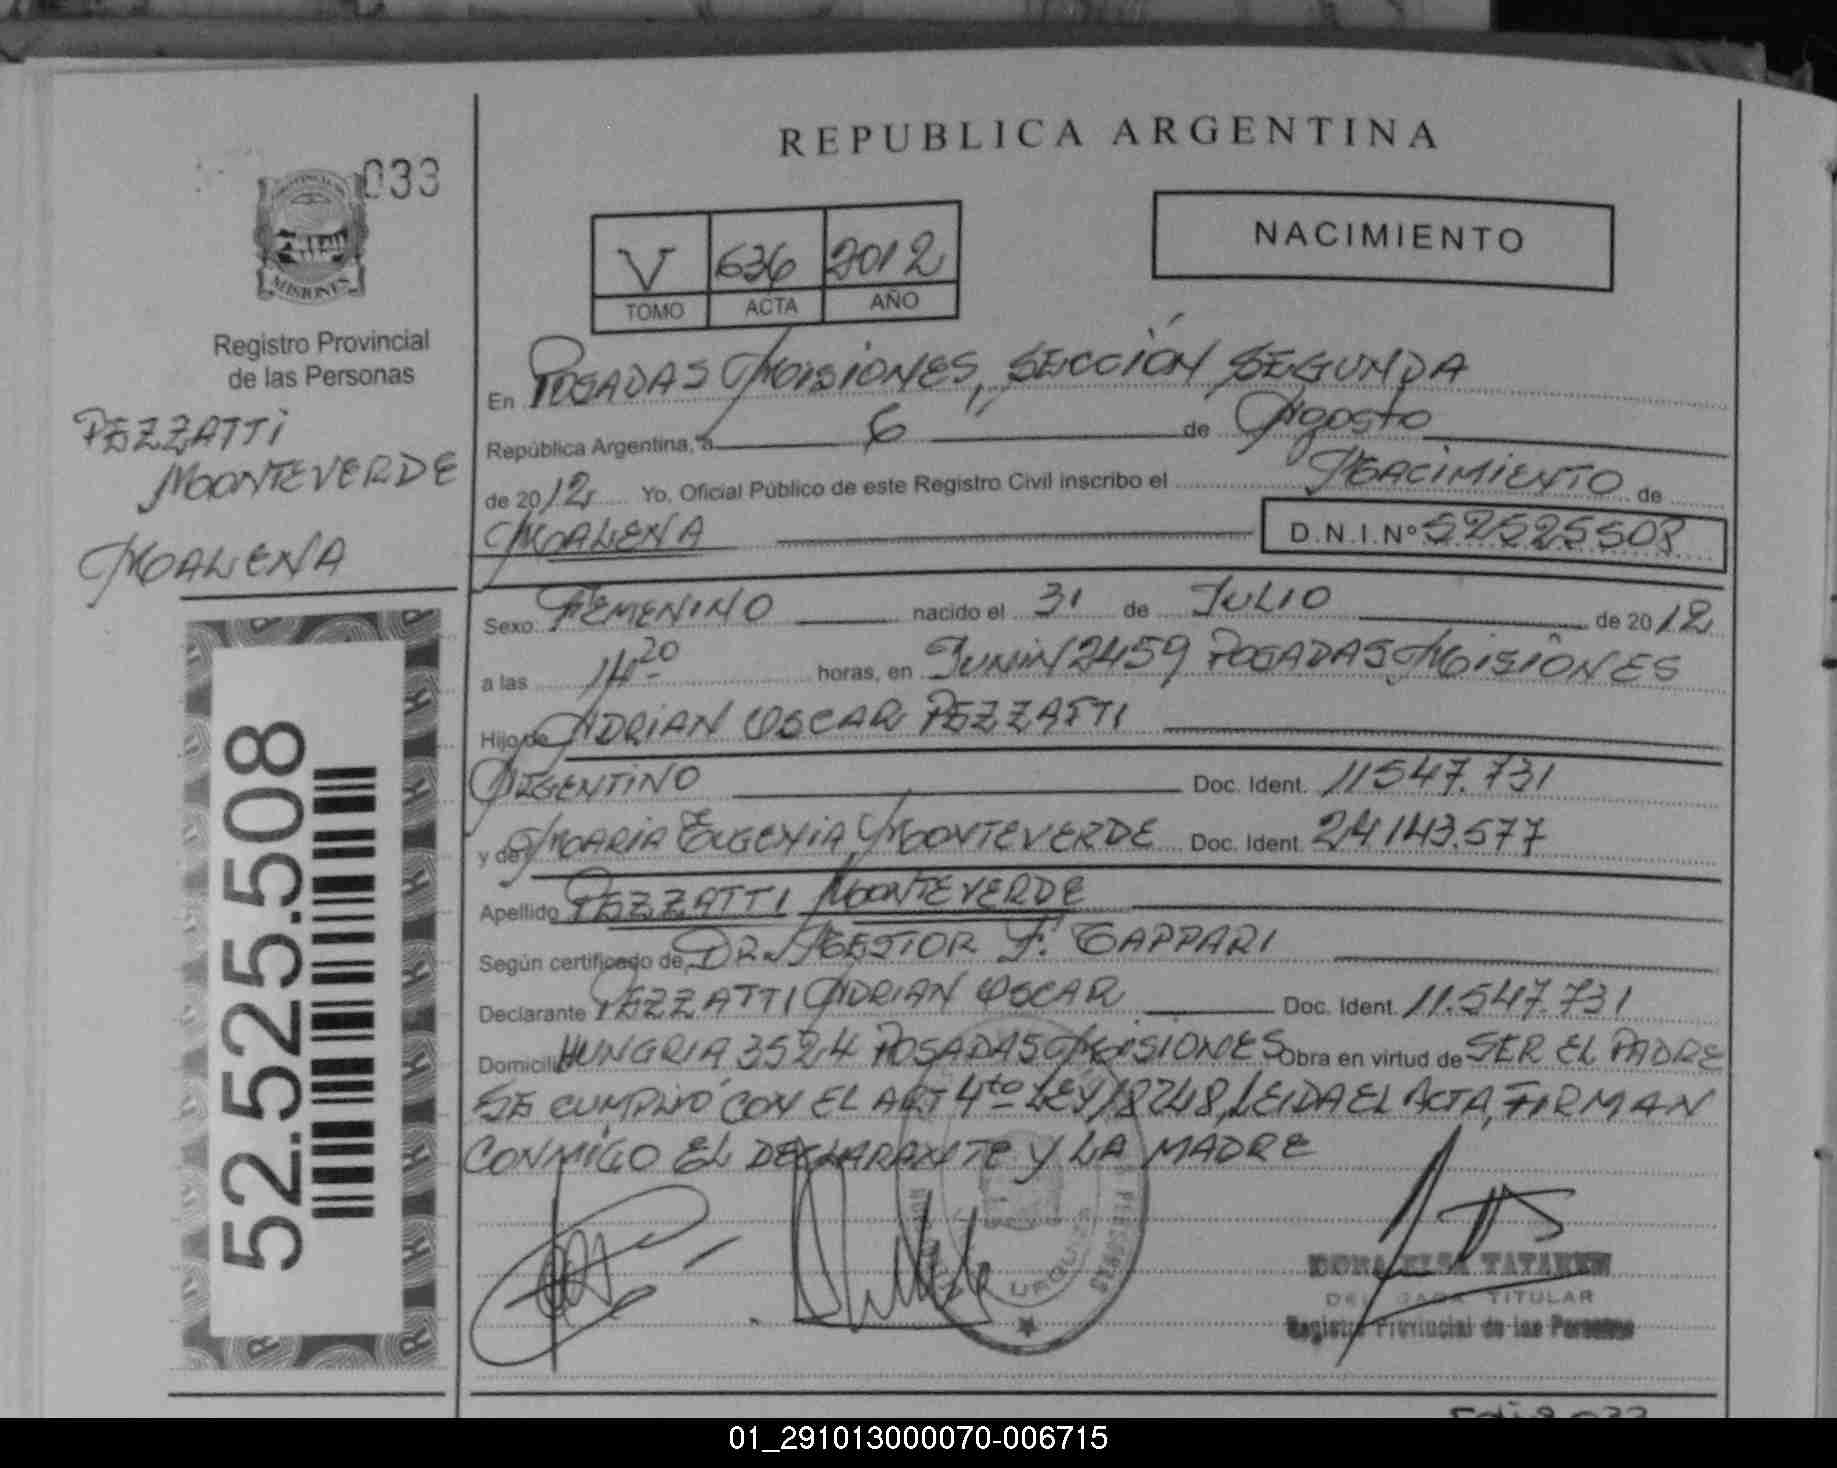 REPUBLICA ARGENTINA
033
PROVINCIA DE
MISIONES
Registro Provincial
de las Personas
PEZZATTI
MONTEVERDE
MALENA
52.525.508
V 636 2012
TOMO ACTA AÑO
NACIMIENTO
En POSADAS MISIONES, SECCIÓN SEGUNDA
República Argentina, a 6 de Agosto
de 2012 Yo, Oficial Público de este Registro Civil inscribo el NACIMIENTO de
MALENA D.N.I.Nº 52525508
Sexo FEMENINO nacido el 31 de JULIO de 2012
a las 14 20 horas, en JUNIN 2459 POSADAS MISIONES
Hijo de ADRIAN OSCAR PEZZATTI
ARGENTINO Doc. Ident. 11547.731
y de MARIA EUGENIA MONTEVERDE Doc. Ident. 24143.577
Apellido PEZZATTI MONTEVERDE
Según certificado de DR. NESTOR F. GAPPARI
Declarante PEZZATTI ADRIAN OSCAR Doc. Ident. 11.547.731
Domicilio HUNGRIA 3524 POSADAS MISIONES Obra en virtud de SER EL PADRE
SE CUMPLIÓ CON EL ART 4to LEY 18248, LEIDA EL ACTA, FIRMAN
CONMIGO EL DECLARANTE Y LA MADRE
URQUIZA
DORA ELSA
TITULAR
Registro Provincial de las Personas
01_291013000070-006715